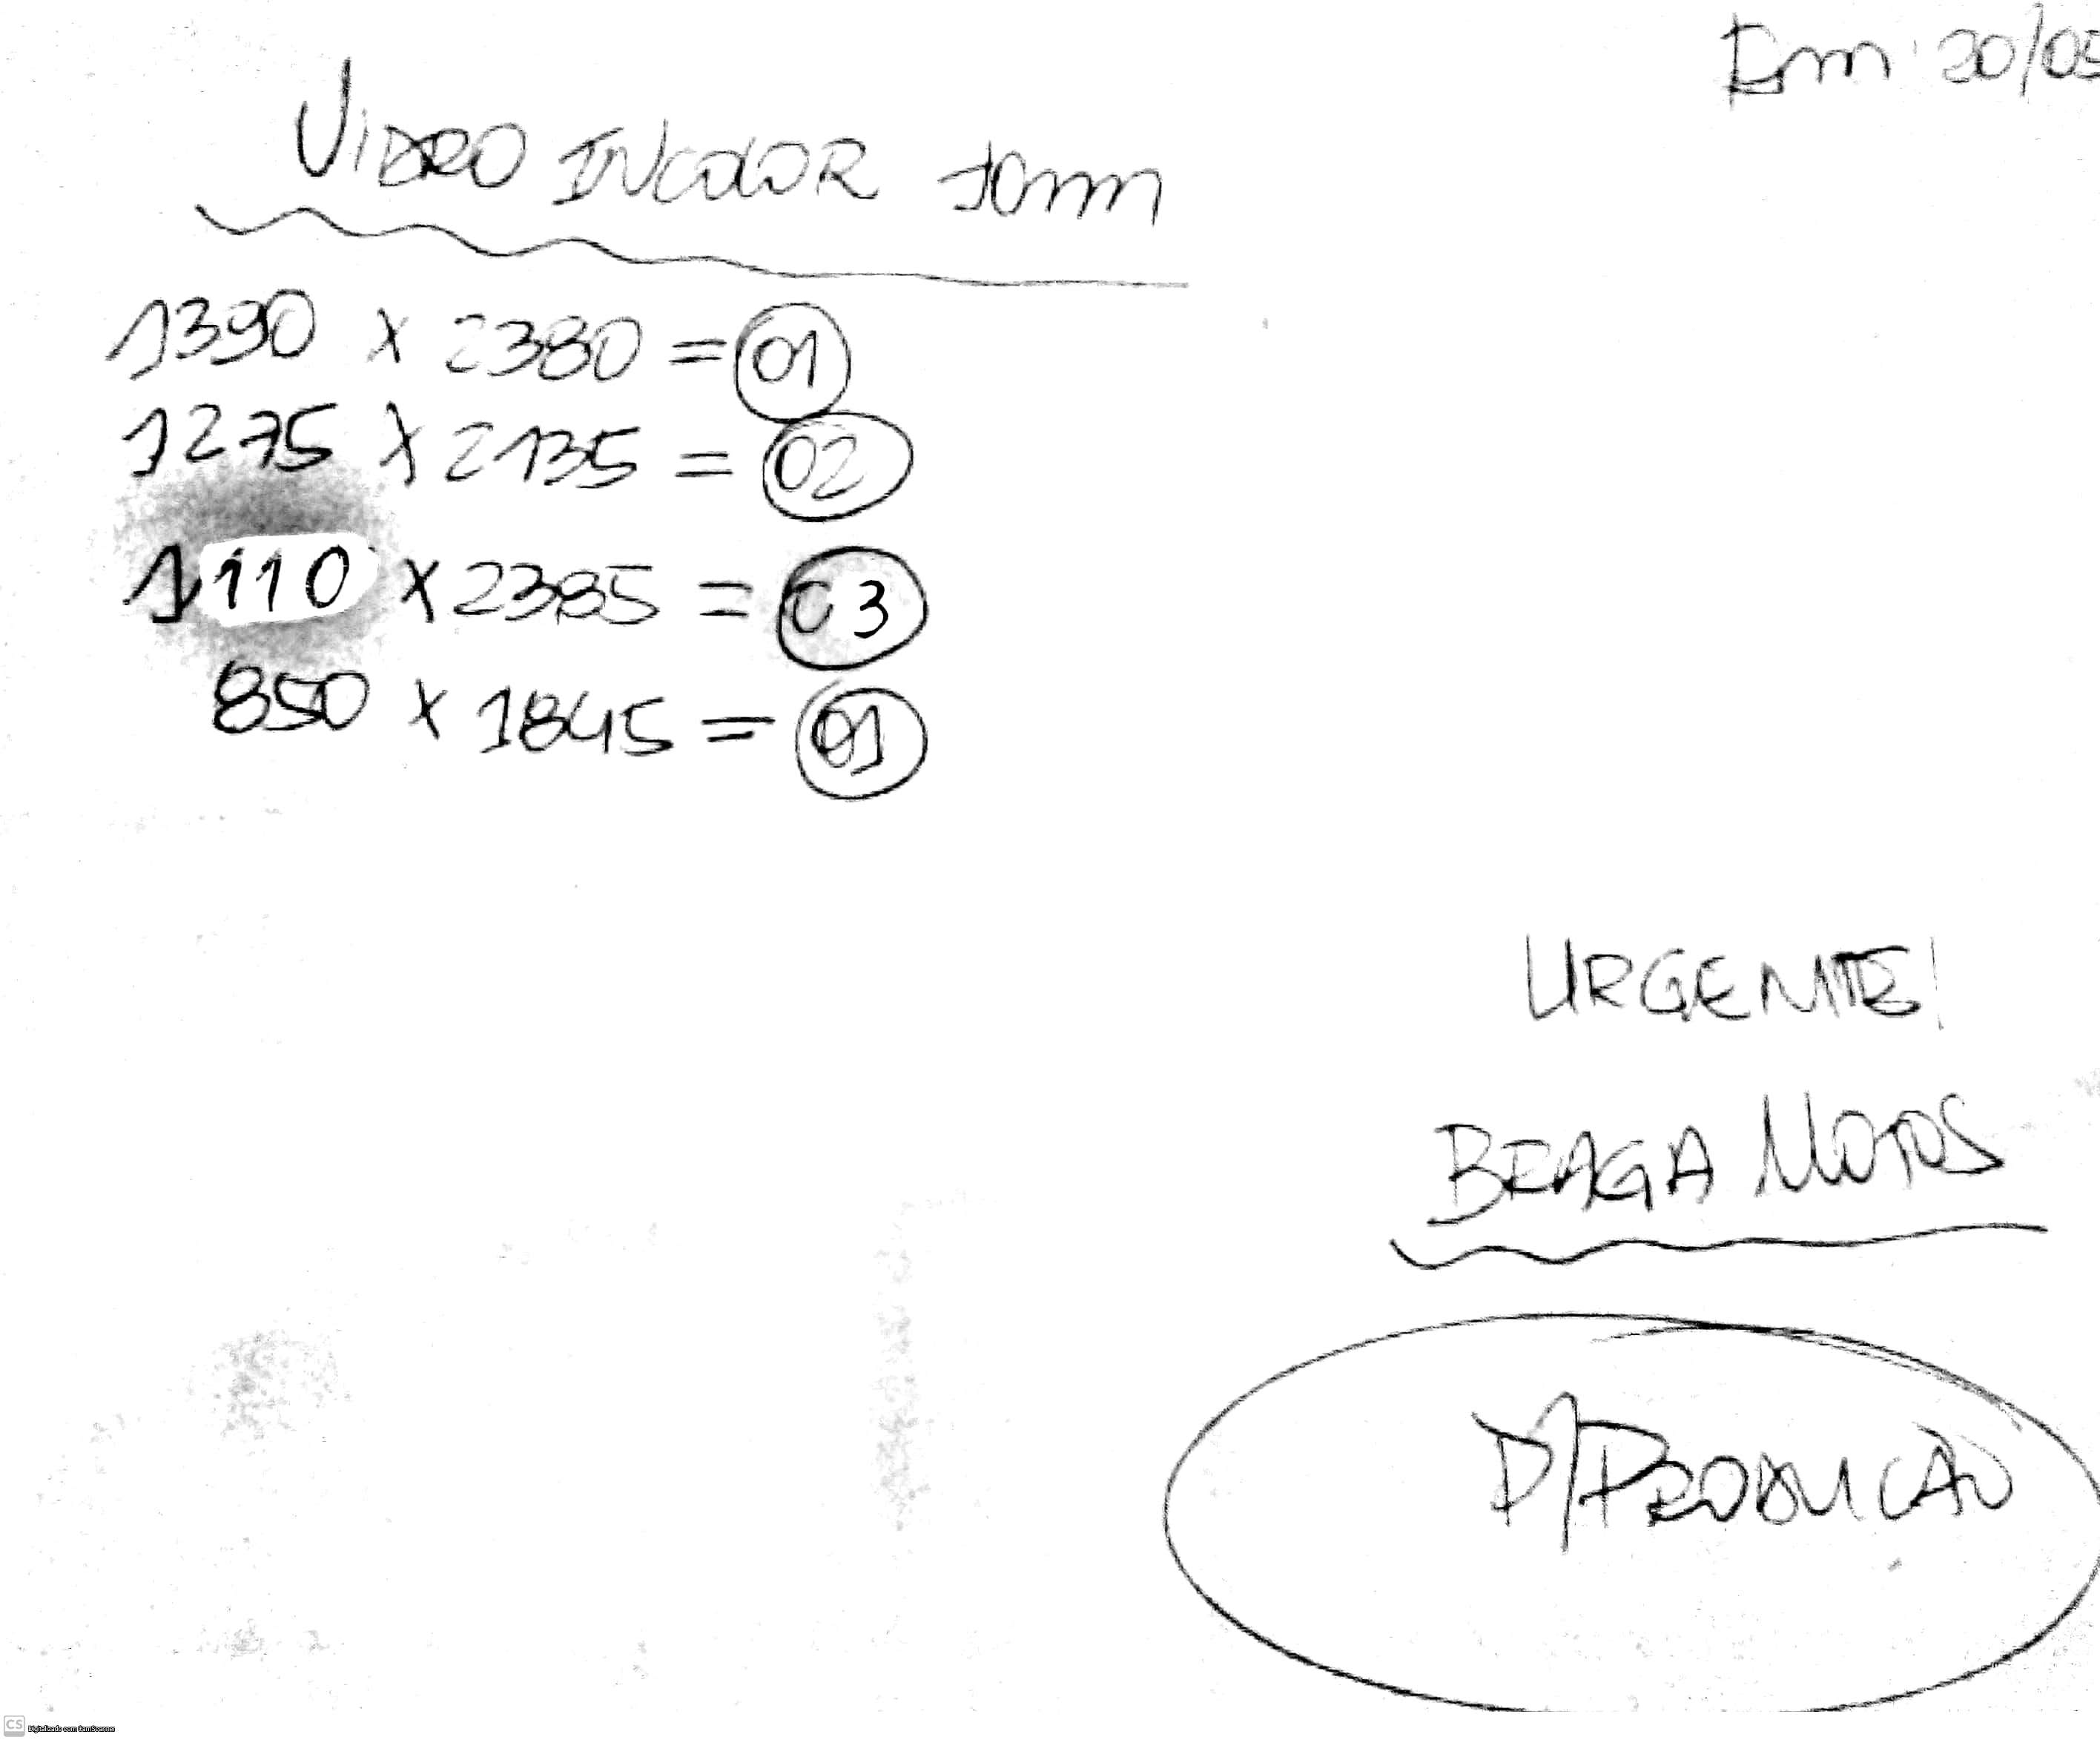 Em 20/05
VIDRO INCOLOR 10mm
1390 x 2380 = 01
1275 x 2135 = 02
1110 x 2385 = 03
850 x 1845 = 01
URGENTE!
BRAGA MOTOS
P/PRODUCÃO
CS Digitalizado com CamScanner